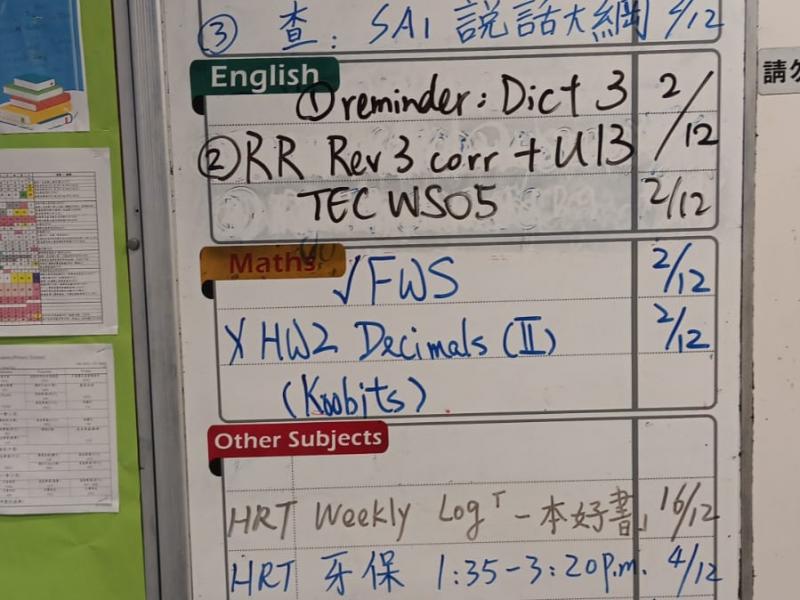 ③ 查: SA1 説話大綱 4/12
English
①reminder: Dict 3 2/12
②RR Rev 3 corr + U13
TEC WS05 2/12
Maths
√ FWS 2/12
X HW2 Decimals (II) 2/12
(Koobits)
Other Subjects
HRT Weekly Log T - 本好書 16/12
HRT 牙保 1:35-3:20p.m. 4/12
請勿